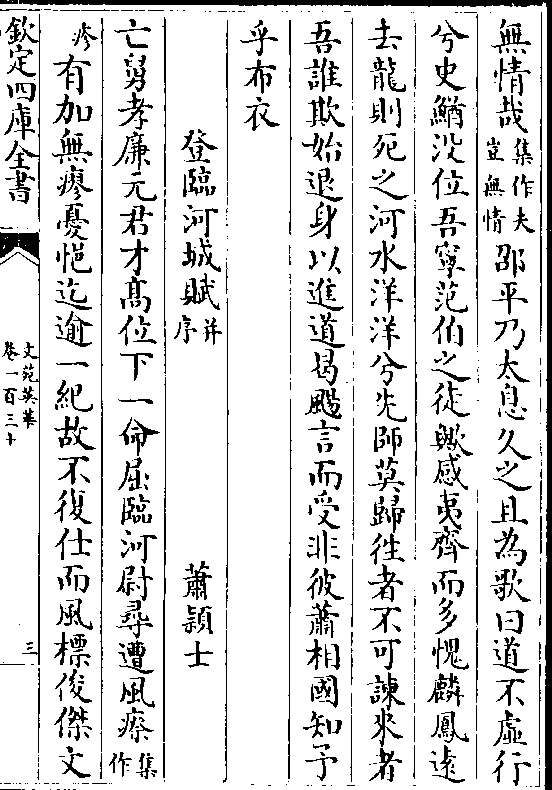 無情哉集作夫豈無情邵平乃太息久之且為歌曰道不虛行
兮史鰌没位吾寧范伯之徒歟感夷齊而多愧麟鳳逺
去龍則死之河水洋洋兮先師莫歸徃者不可諫来者
吾誰欺始退身以進道曷颺言而受非彼蕭相國知予
乎布衣
登臨河城賦并序　蕭頴士
亡舅孝廉元君才髙位下一命屈臨河尉尋遭風瘵集作
疹有加無瘳憂悒迄逾一紀故不復仕而風標俊傑文
欽定四庫全書
文苑英華
卷一百三十
三